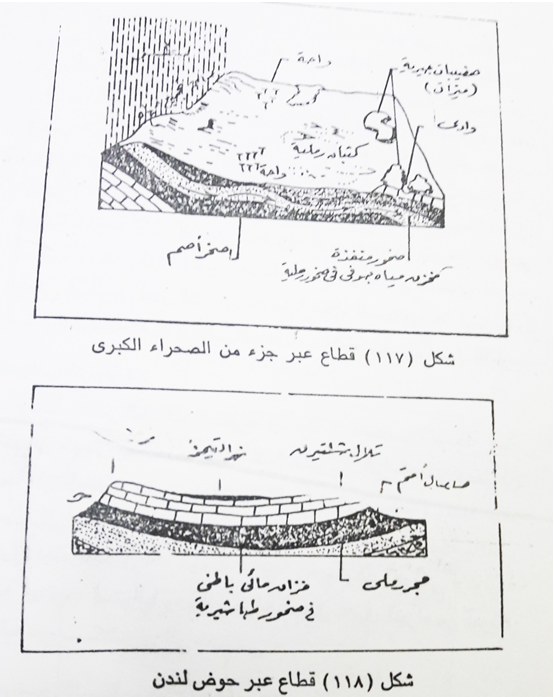 واحة
هضيبات جيرية
(ميزات)
وادى
كثبان رملية
واحة
صخر أصم
صخور منفذة
خزان مياه جوفى فى صخور رملية
شكل (١١٧) قطاع عبر جزء من الصحراء الكبرى
تلال تشلترن
نهر التيمز
صلصال أصم
حجر رملى
خزان مائى باطنى
فى صخور طباشيرية
شكل (١١٨) قطاع عبر حوض لندن